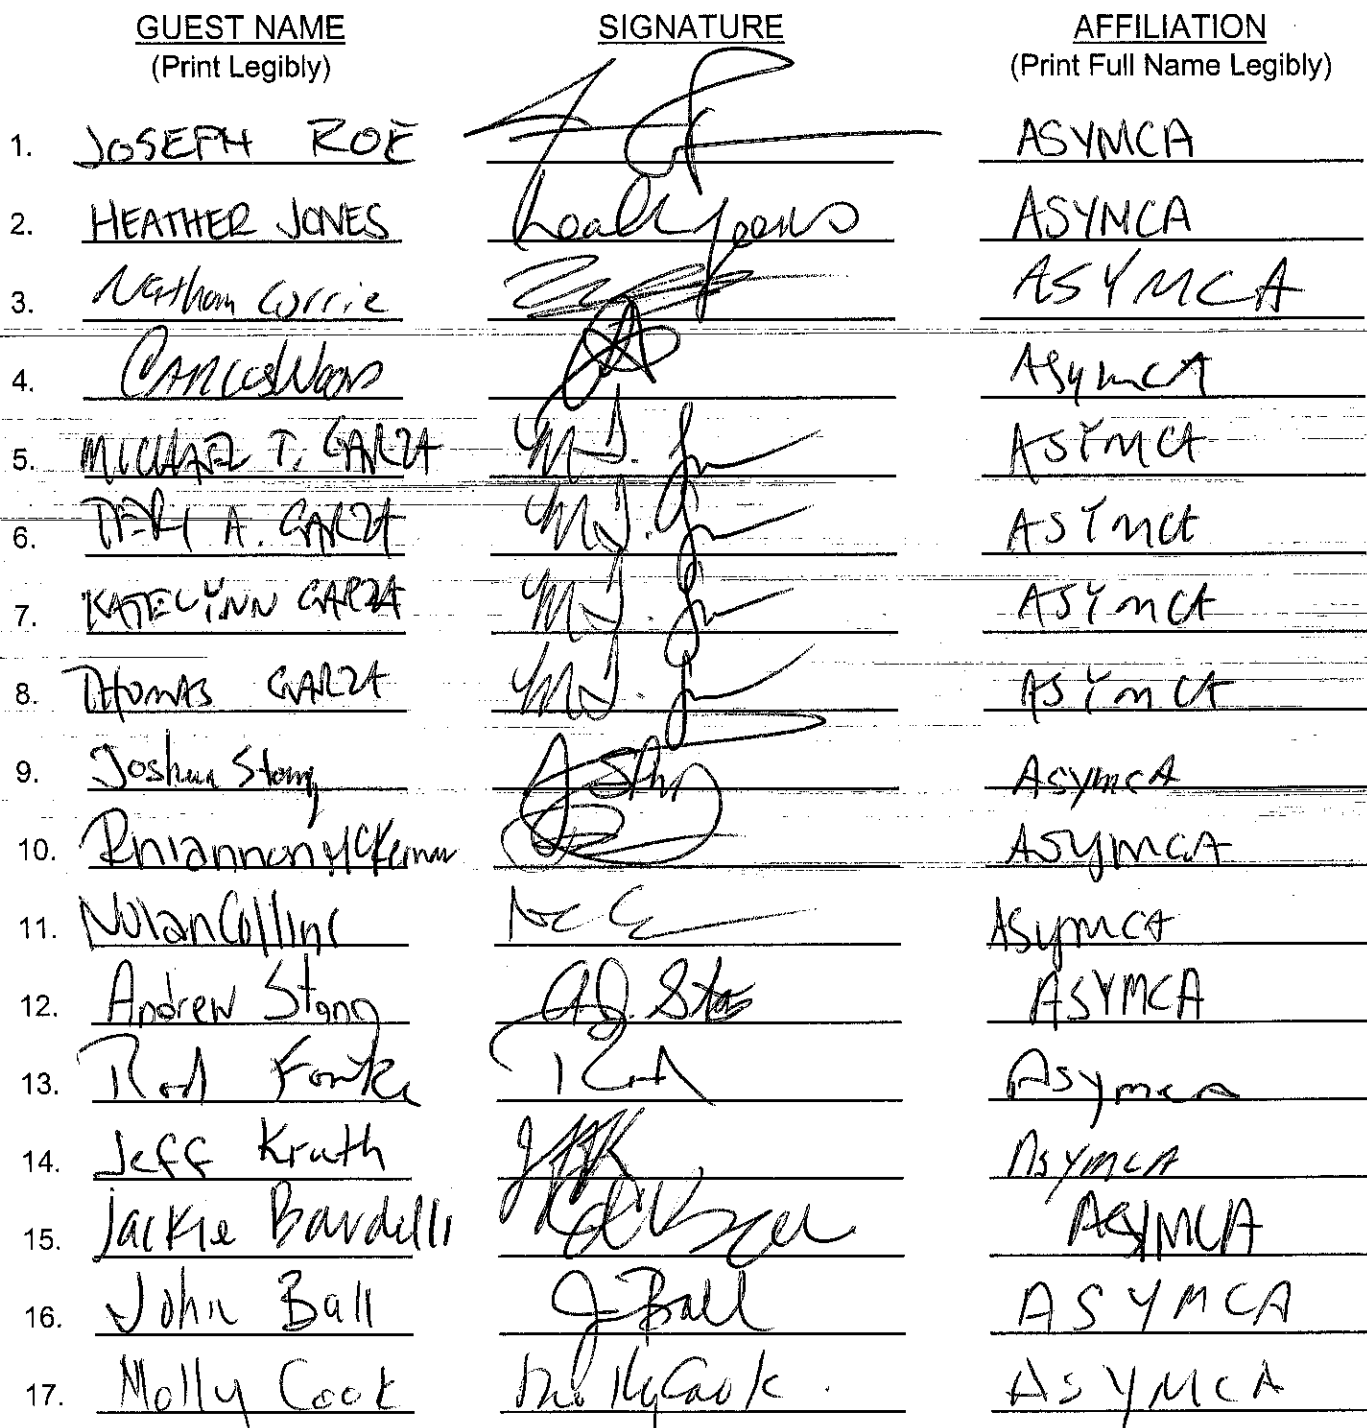 GUEST NAME SIGNATURE AFFILIATION
(Print Legibly) (Print Full Name Legibly)
1. JOSEPH ROE ASYMCA
2. HEATHER JONES ASYMCA
3. Nathan Currie ASYMCA
4. Carlos Woods AsymcA
5. MICHAEL T. GARZA ASYMCA
6. TERI A. GARZA ASYMCA
7. KATELYNN GARZA ASYMCA
8. THOMAS GARZA ASYMCA
9. Joshua Stang AsymcA
10. Rhiannon McKernan ASYMCA
11. Nolan Collins ASYMCA
12. Andrew Stang A.J. Stang ASYMCA
13. Rod Asymca
14. Jeff Krath Asymca
15. Jackie Bardelli ASYMCA
16. John Ball J Ball ASYMCA
17. Molly Cook Molly Cook ASYMCA